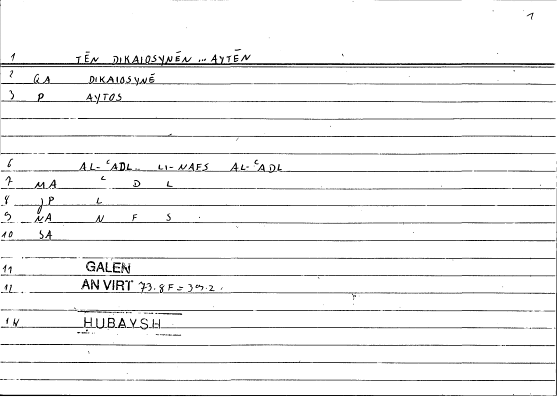 1
1 TĒN DIKAIOSYNĒN ... AYTĒN
2 GA DIKAIOSYNĒ
3 P AYTOS
6 AL-ʿADL.. LI-NAFS AL-ʿADL
7 MA ʿ D L
8 JP L
9 NA N F S
10 SA
11 GALEN
12 AN VIRT 73.8F = 39.2.
14 HUBAYSH